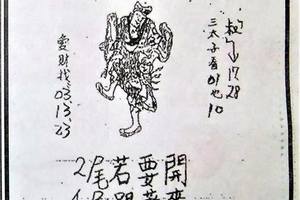 叔→17.28
三太子看01也10
愛財找03.13.23
2尾若要開